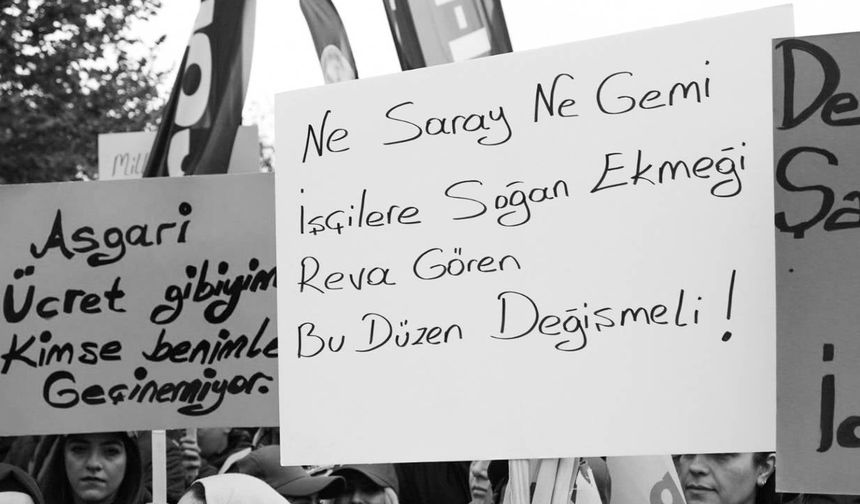 Asgari
Ücret gibiyim
Kimse benimle
Geçinemiyor.
Ne Saray Ne Gemi
İşçilere Soğan Ekmeği
Reva Gören
Bu Düzen Değişmeli!
De
Şa